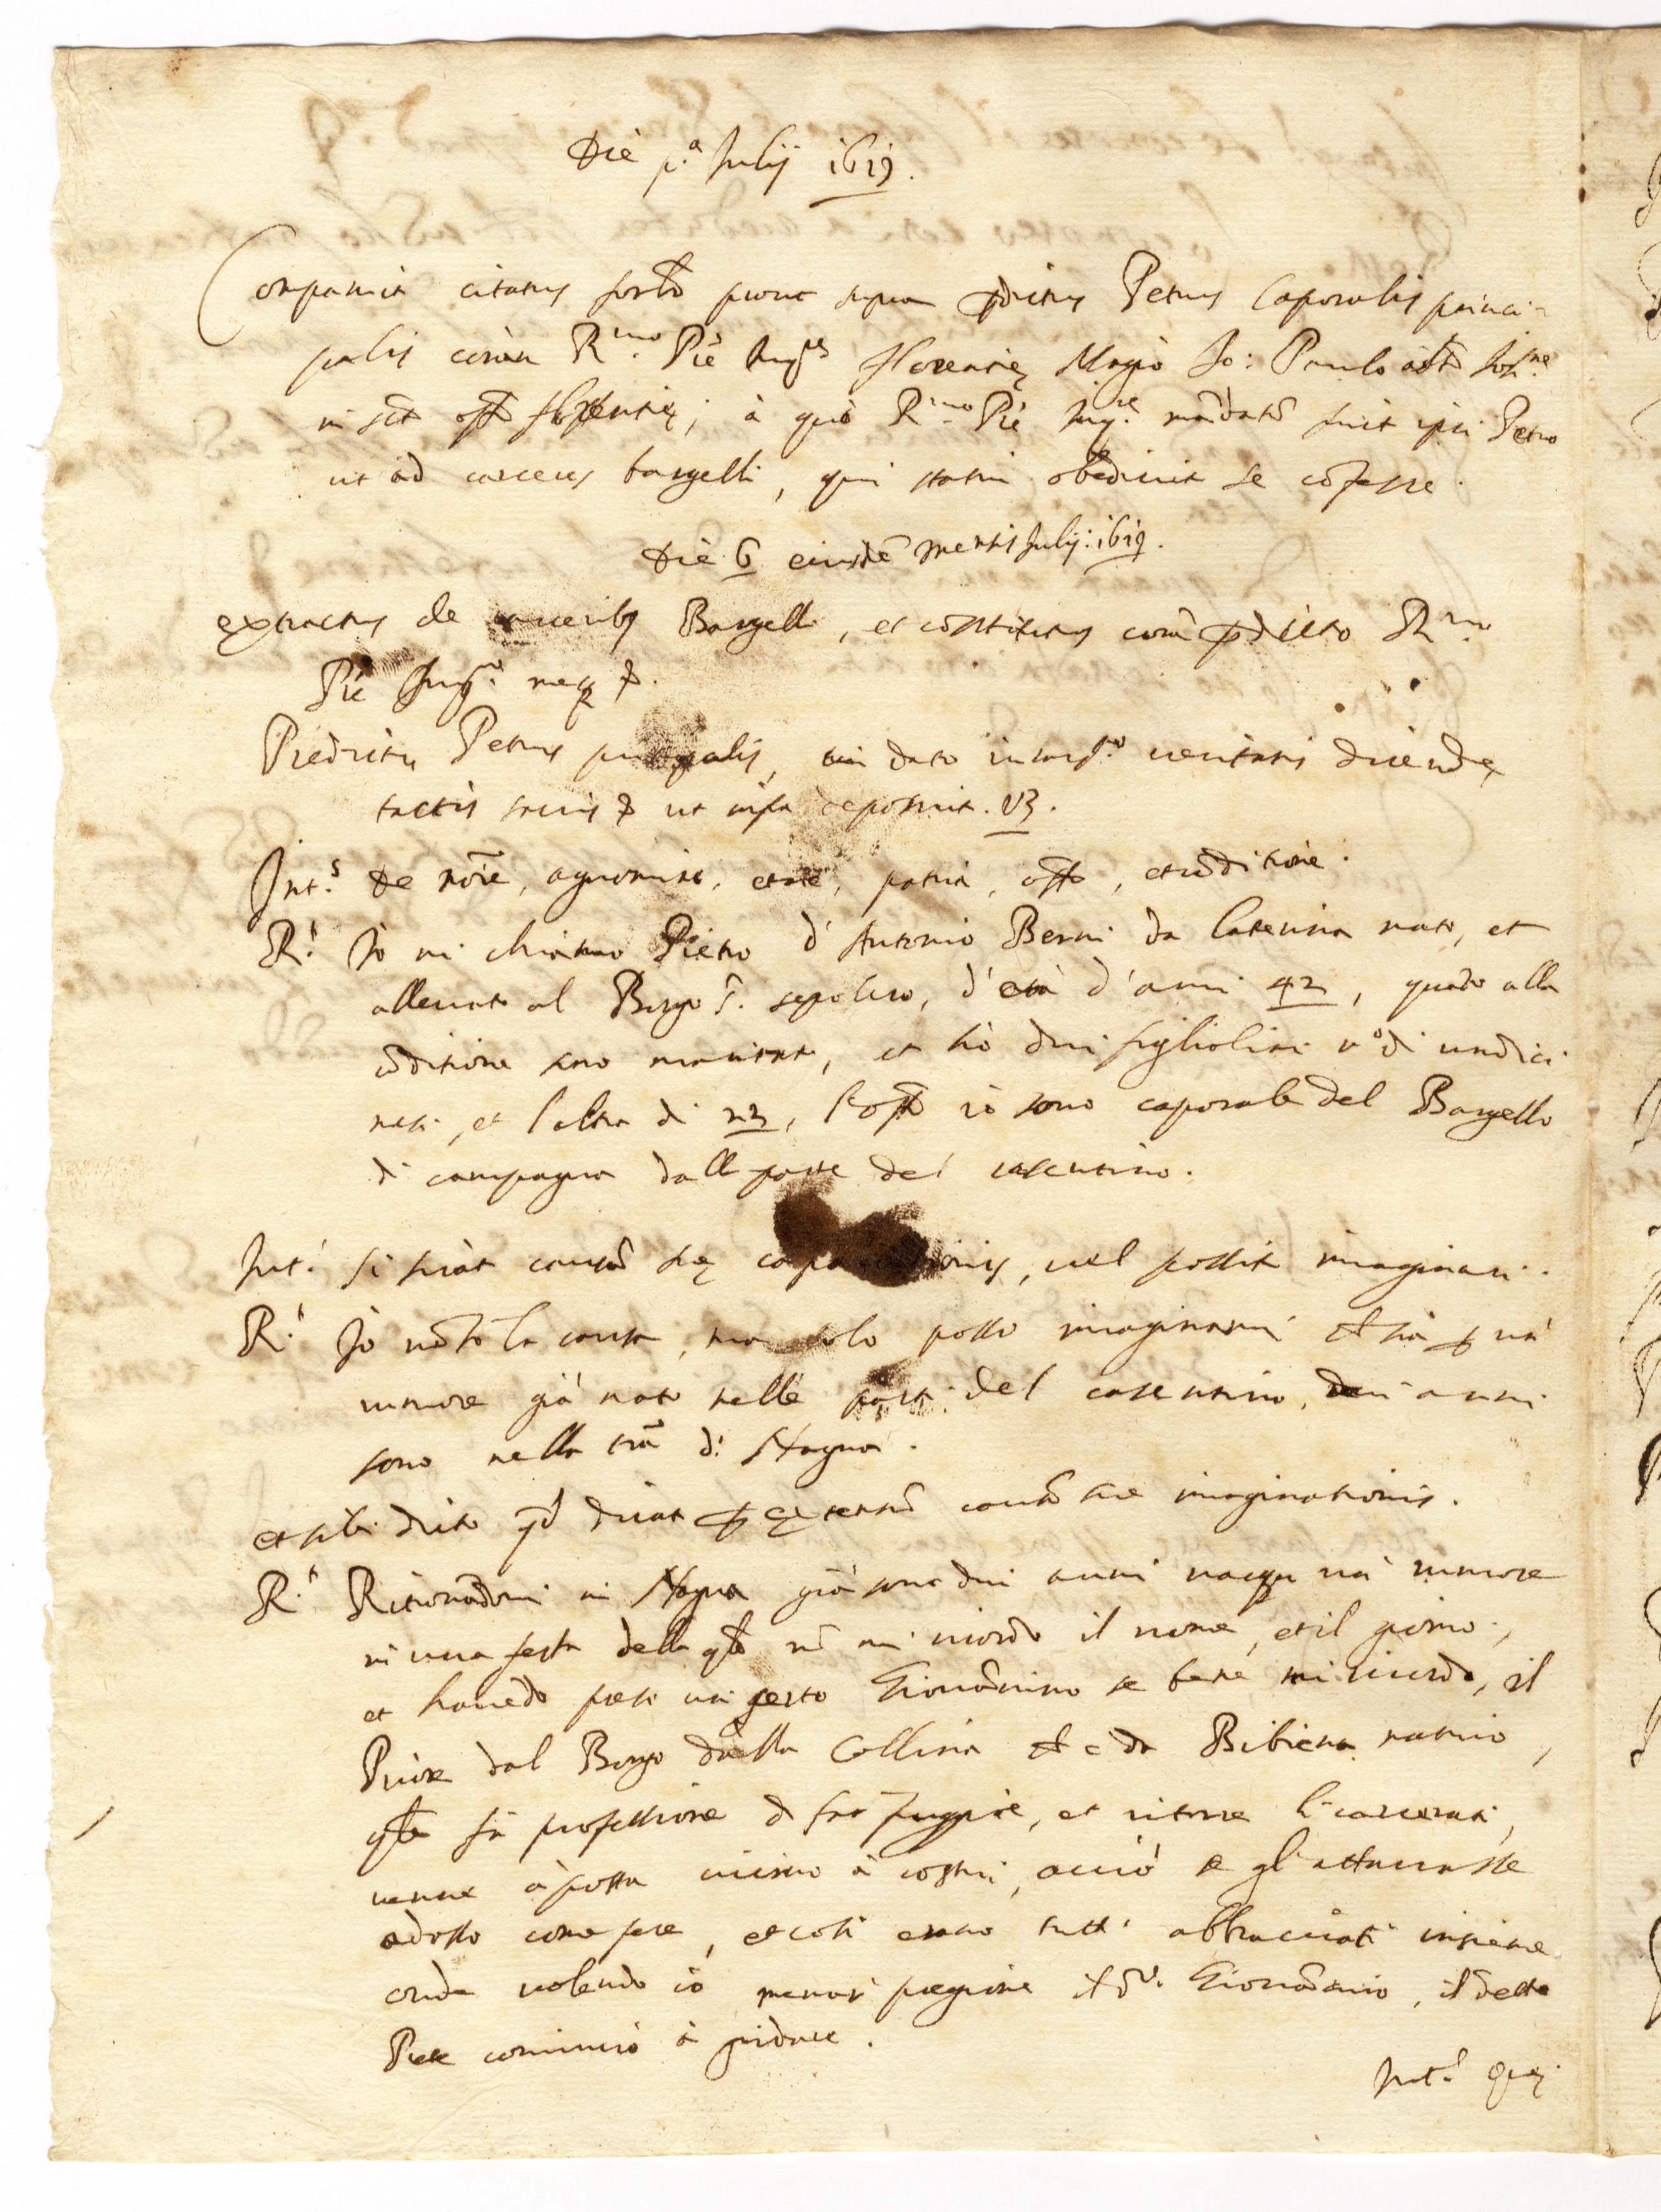 Die p.ª Julij 1619.
Comparuit citatus prout supra pdictus Petrus Caporalis princi-
palis coram R.mo Pre Inq.re Florentie Magro Jo: Paulo
in sct off Florentie; à quo R.mo Pre Inq.re mandatũ fuit ipsi Petro
ut ad carceres bargelli, qui statim obedivit se
Die 6 eiusdẽ mensis Julij 1619.
extractus de carceribus Bargelli, et constitutus corã pdicto R.mo
Pre Inq.re meq
Predictus Petrus principalis, cui dato iuram.to veritatis dicende
tactis sacris ut infra deposuit. Vz.
Int.s De noie, agnomine, etate, patria, offo, et cõditione.
R.t Io mi chiamo Pietro d'Antonio Berni da Laterina nato, et
allevato al Borgo S. sepolcro, d'età d'anni 42, quãto alla
cõditione sono maritato, et hò dui figliolini v.º di undici
mesi, et l'altra di, l'offo io sono caporale del Bargello
di campagna dalle parte del casentino.
Int.s si sciat causã sue, vel possit imaginari.
R.t Io nõ so la causa, ma solo posso imaginarmi che sia p un
rumore già nato nelle parti del casentino, dui anni
sono nella trã di Stagna.
et sibi dicto qd dicat p extensũ causã sue imaginationis.
R.t Ritrovãdomi in Stagna già sono dui anni nacque un rumore
in una festa della qle nõ mi ricordo il nome, et il giorno,
et havẽdo preso un certo Giovãnino se bene mi ricordo, il
Priore dal Borgo della Collina che è da Bibiena nativo,
qle fà professione di far fuggire, et ritorre li carcerati,
venne à posta vicino à costui, acciò se gl'attaccasse
adosso come fece, et così erano tutti abbracciati insieme
onde volendo io menar pregione il d.º Giovãnino, il detto
Prete cominciò à gridare.
Int.s Que